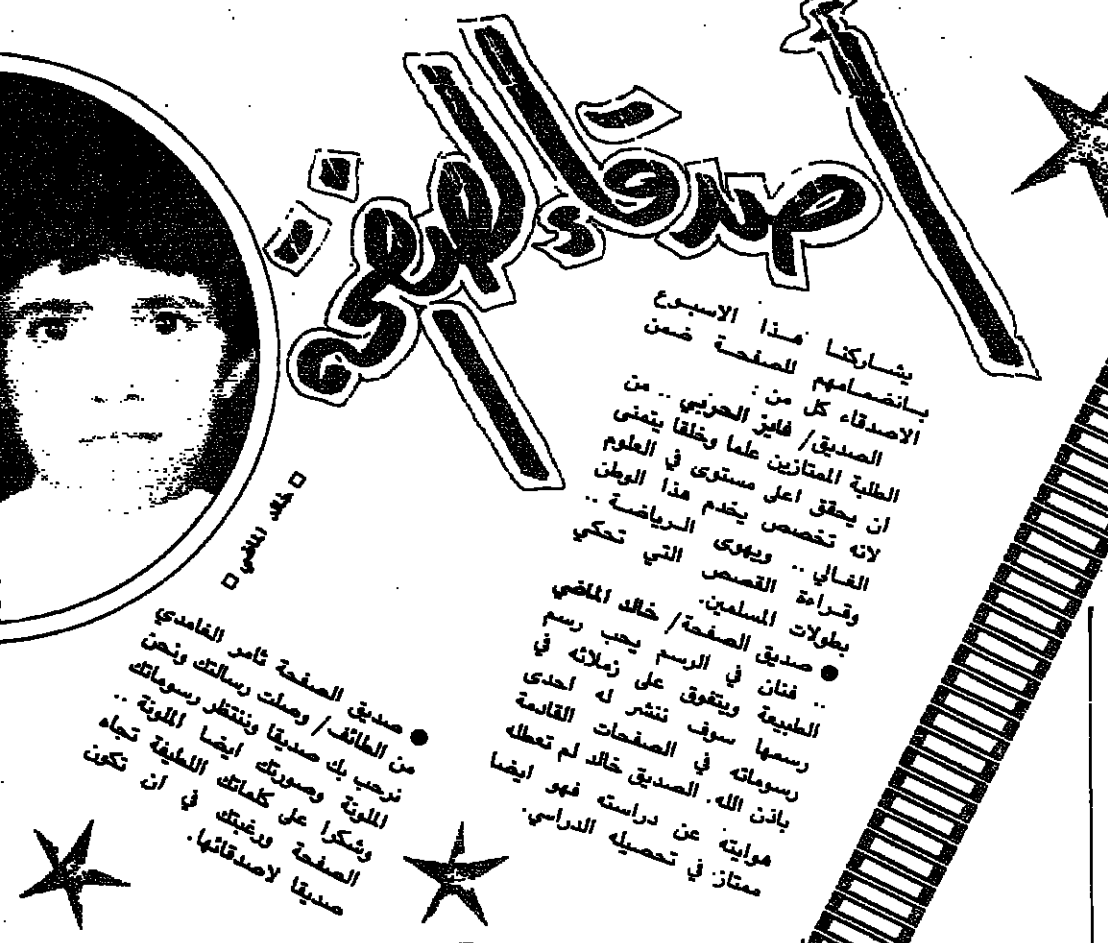 أصدقاء البدون
يشاركنا هذا الاسبوع
بانضمامهم للصفحة ضمن
الاصدقاء كل من :
الصديق/ فايز الحربي .. من
الطلبة الممتازين علما وخلقا يتمنى
ان يحقق اعلى مستوى في العلوم
لانه تخصص يخدم هذا الوطن
الغالي .. ويهوى الرياضة ..
وقراءة القصص التي تحكي
بطولات المسلمين.
● صديق الصفحة/ خالد الماضي
.. فنان في الرسم يحب رسم
الطبيعة ويتفوق على زملائه في
رسمها سوف ننشر له احدى
رسوماته في الصفحات القادمة
باذن الله. الصديق خالد لم تعطله
هوايته عن دراسته فهو ايضا
ممتاز في تحصيله الدراسي.
□ خالد الماضي □
● صديق الصفحة ثامر الغامدي
من الطائف/ وصلت رسالتك ونحن
نرحب بك صديقا وننتظر رسوماتك
الملونة وصورتك ايضا الملونة ..
وشكرا على كلماتك اللطيفة تجاه
الصفحة ورغبتك في ان تكون
صديقا لاصدقائها.